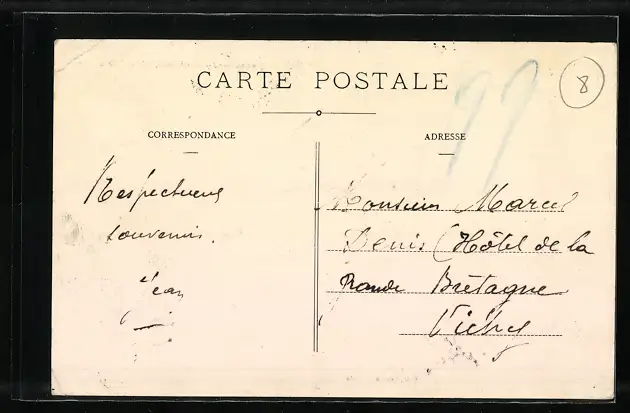 CARTE POSTALE
99
8
CORRESPONDANCE
ADRESSE
Respectueux
souvenirs.
Jean
Monsieur Marcel
Denis (Hôtel de la
Grande Bretagne
Vichy